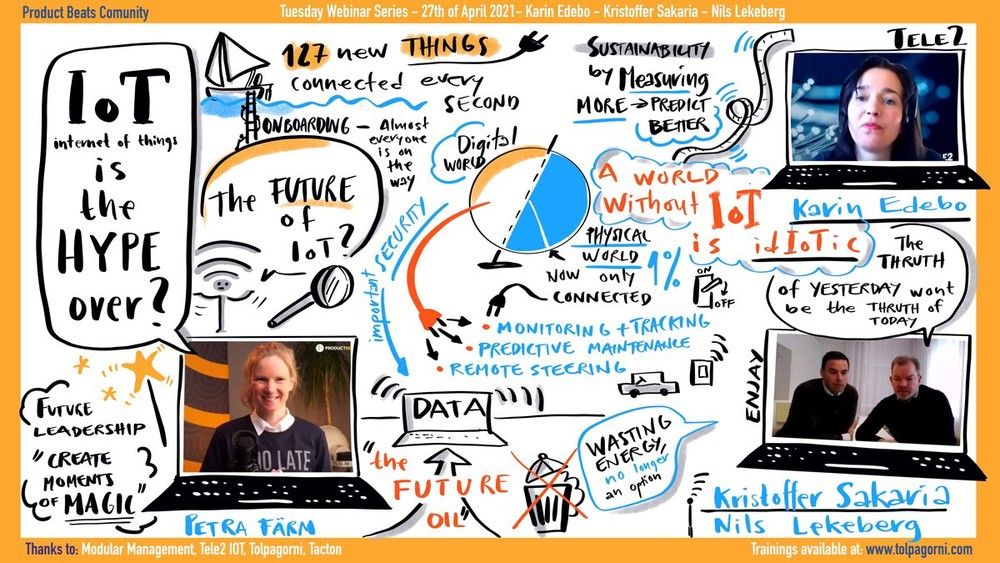 Product Beats Comunity
Tuesday Webinar Series - 27th of April 2021- Karin Edebo - Kristoffer Sakaria - Nils Lekeberg
IoT
internet of things
is
the
HYPE
over?
127 new THINGS
connected every
SECOND
ONBOARDING - Almost
everyone
is on
the
way
The FUTURE
of
IoT?
SUSTAINABILITY
by Measuring
MORE → PREDICT
BETTER
TELE2
Karin Edebo
Digital
WORLD
PHYSICAL
WORLD
NOW only 1%
CONNECTED
important SECURITY
A WORLD
Without IoT
is idIoTic
ON
OFF
The
THRUTH
of YESTERDAY wont
be the THRUTH of
TODAY
• MONITORING + TRACKING
• PREDICTIVE MAINTENANCE
• REMOTE STEERING
FUTURE
LEADERSHIP
"CREATE
MOMENTS
of MAGIC"
PRODUCT
OO LATE
PETRA FÄRM
DATA
"the
FUTURE
OIL"
WASTING
ENERGY,
no longer
an option
ENJAY
Kristoffer Sakaria
Nils Lekeberg
Thanks to: Modular Management, Tele2 IOT, Tolpagorni, Tacton
Trainings available at: www.tolpagorni.com